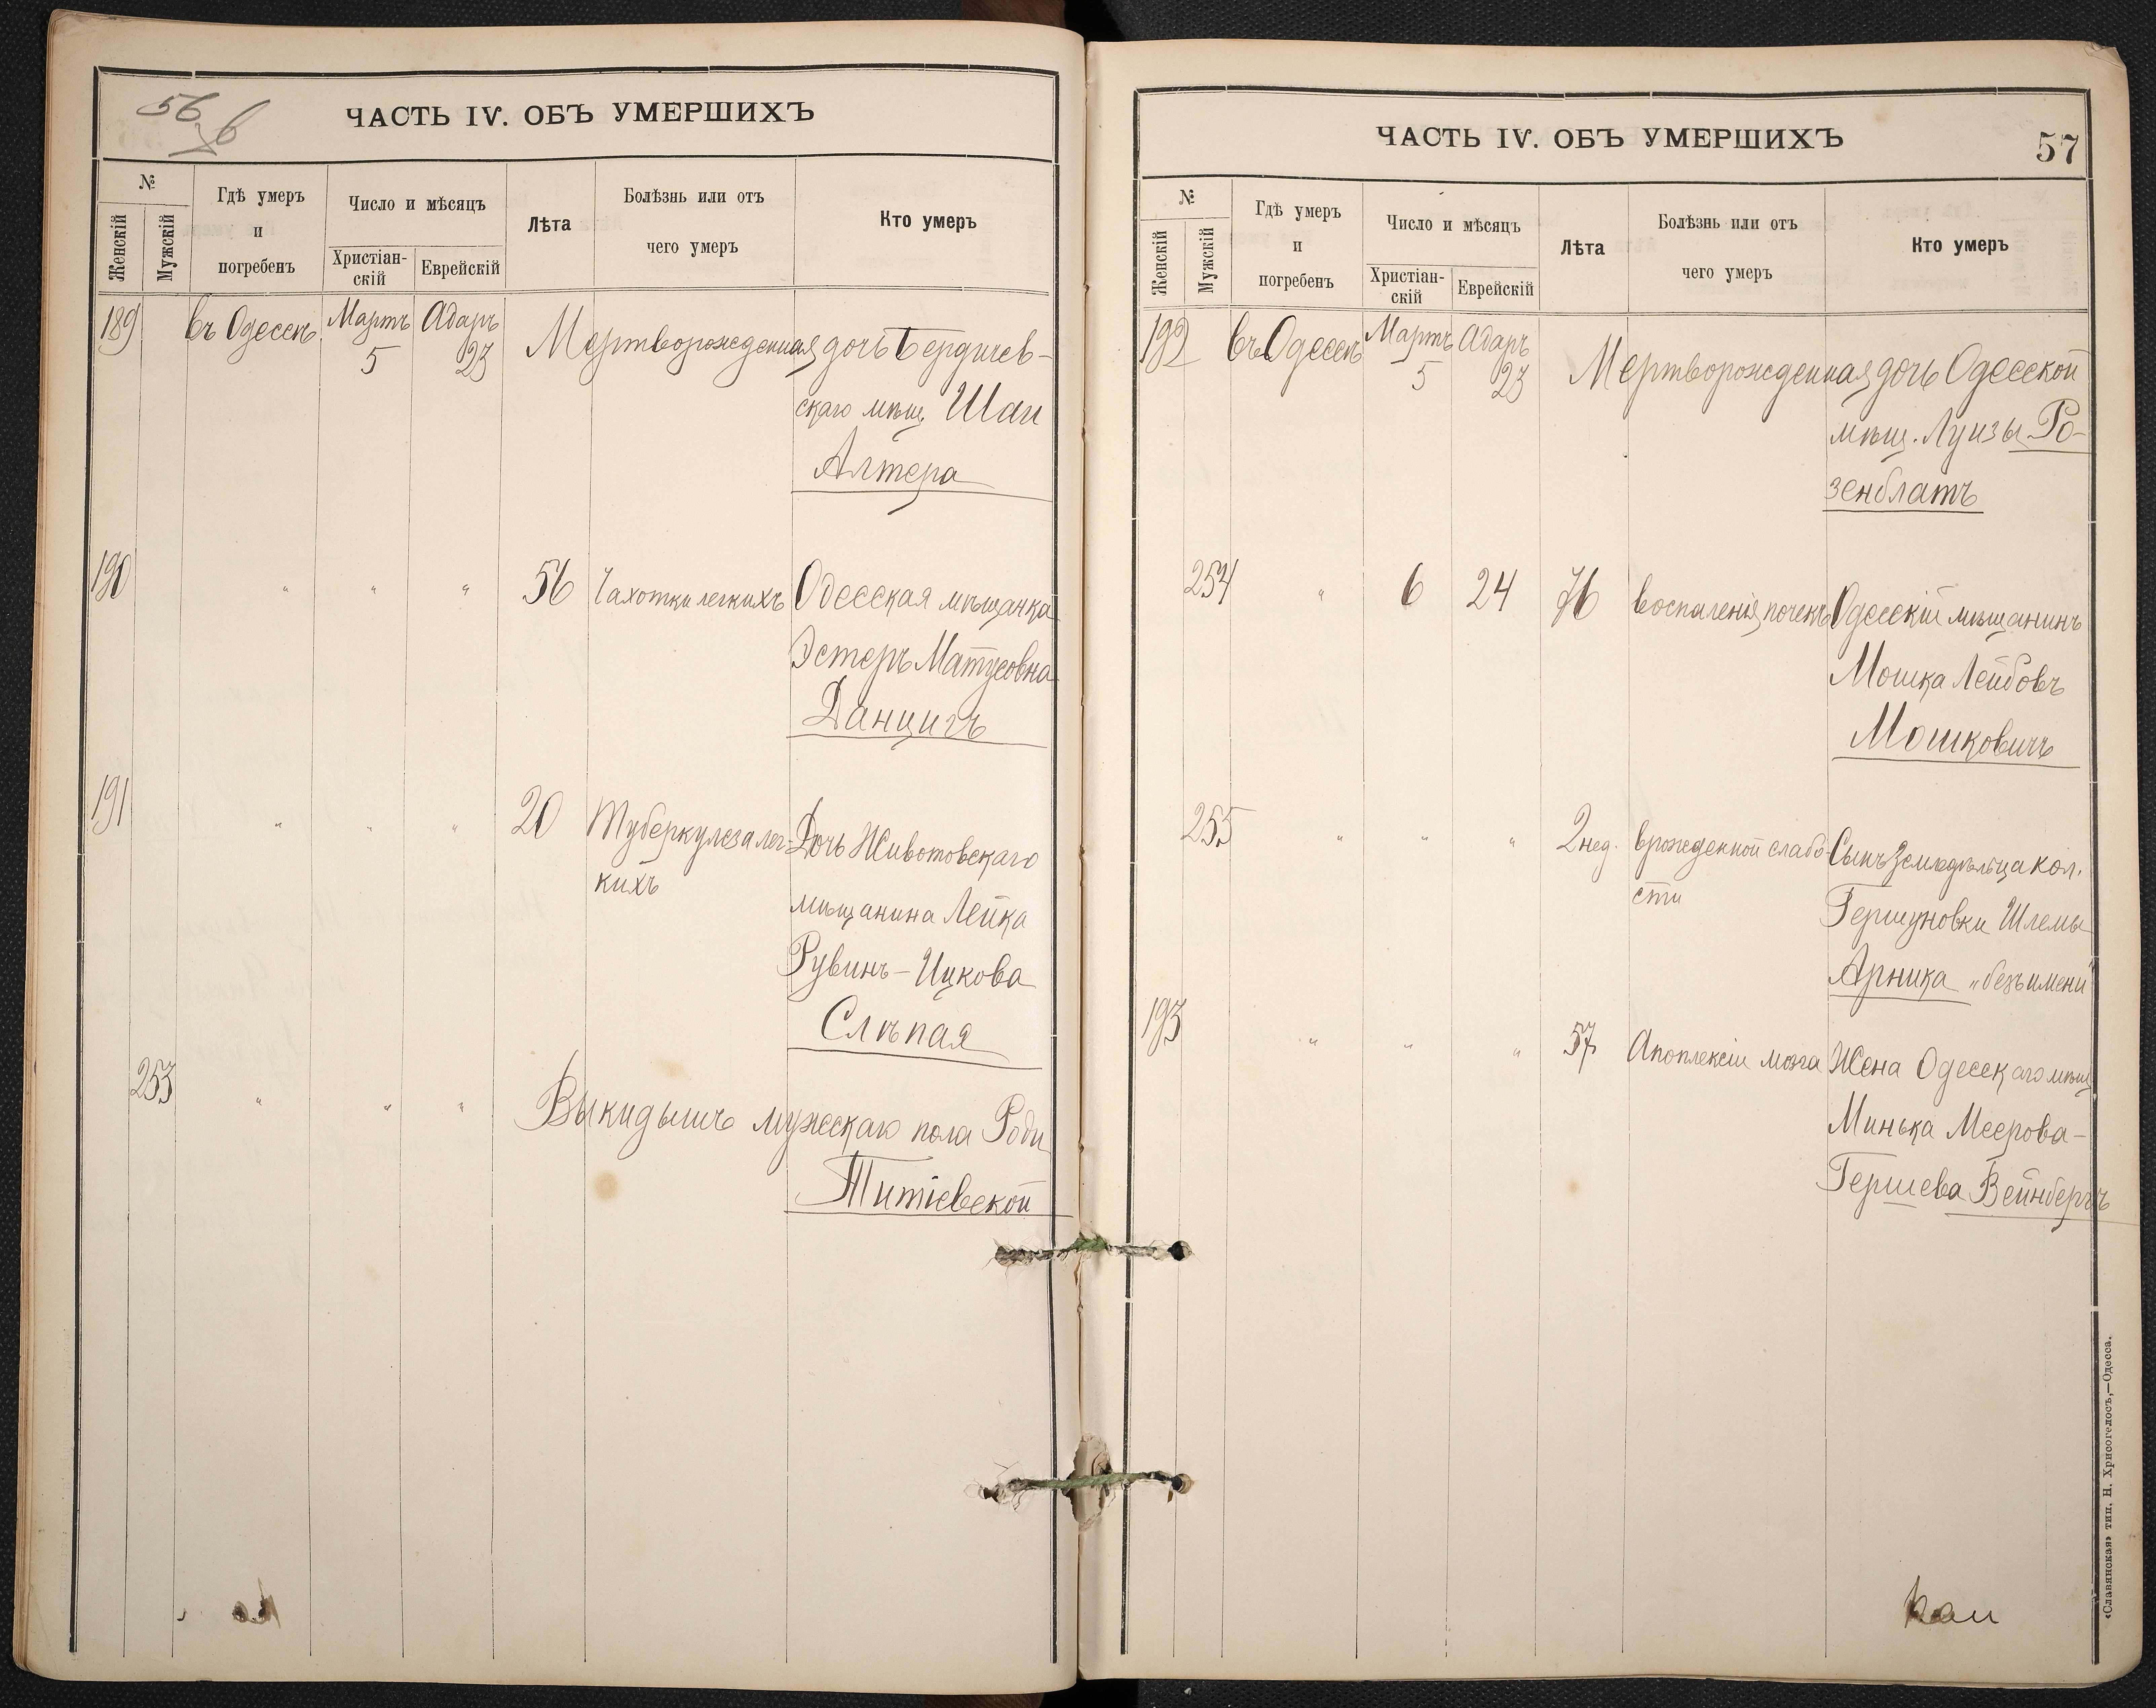 56
ЧАСТЬ IV. ОБЪ УМЕРШИХЪ
№
Женскій
Мужскій
Гдѣ умеръ
и
погребенъ
Число и мѣсяцъ
Христіан-
скій
Еврейскій
Лѣта
Болѣзнь или отъ
чего умеръ
Кто умеръ
189 въ Одессѣ Мартъ Адаръ
5 23 Мертворожденная дочь Бердичев-
скаго мѣщ. Шаи
Алтера
190 " " " 56 Чахотки легкихъ Одесская мѣщанка
Эстеръ Матусовна
Данцигъ
191 " " " 20 Туберкулеза лег- Дочь Животовскаго
кихъ
мѣщанина Лейка
Рувинъ-Ицкова
Слѣпая
253 " " " Выкидышъ мужскаго пола
Титіевской
ЧАСТЬ IV. ОБЪ УМЕРШИХЪ
57
№
Женскій
Мужскій
Гдѣ умеръ
и
погребенъ
Число и мѣсяцъ
Христіан-
скій
Еврейскій
Лѣта
Болѣзнь или отъ
чего умеръ
Кто умеръ
192 въ Одессѣ Мартъ Адаръ
5 23 Мертворожденная дочь Одесской
мѣщ. Луизы Ро-
зенблатъ
254 " 6 24 76 воспаленія почекъ Одесскій мѣщанинъ
Мошка Лейбовъ
Мошковичъ
255 " " " 2 нед. врожденной слабо- Сынъ земледѣльца кол.
сти
Гершуновки Шлемы
Арника "безъ имени"
193 " " " 57 Апоплексіи мозга Жена Одесскаго мѣщ.
Минька Меерова-
Гершева Вейнбергъ
«Славянская» тип. Н. Хрисогелосъ,—Одесса.